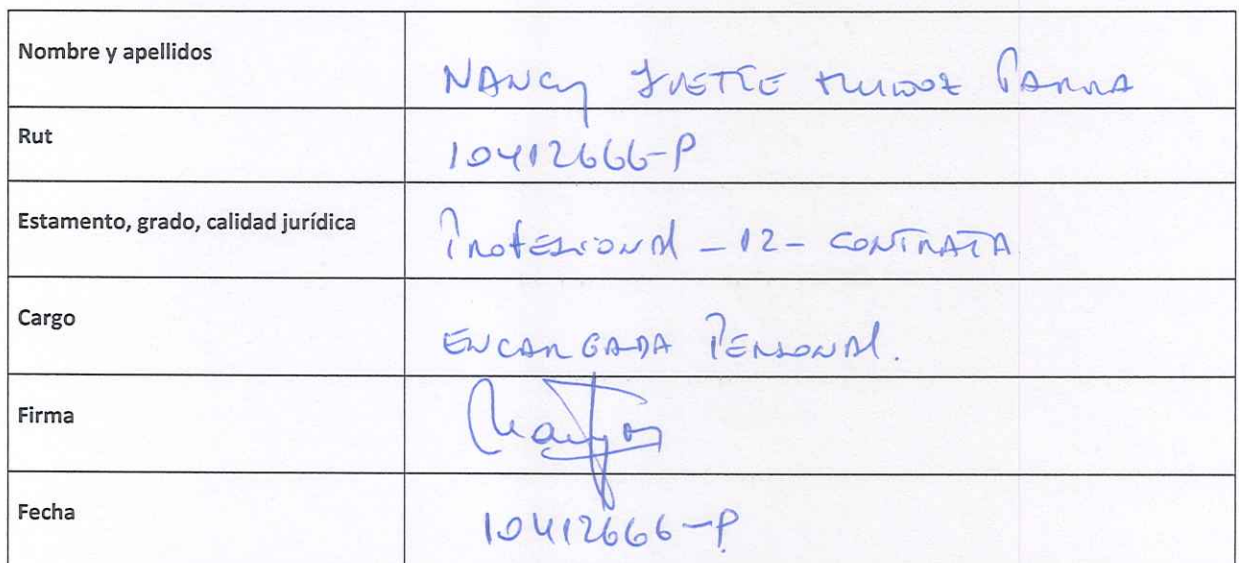 Nombre y apellidos
NANCY IVETTE MUÑOZ PARRA
Rut
10412666-P
Estamento, grado, calidad jurídica
Profesional - 12 - CONTRATA
Cargo
ENCARGADA PERSONAL.
Firma
Fecha
10412666-P